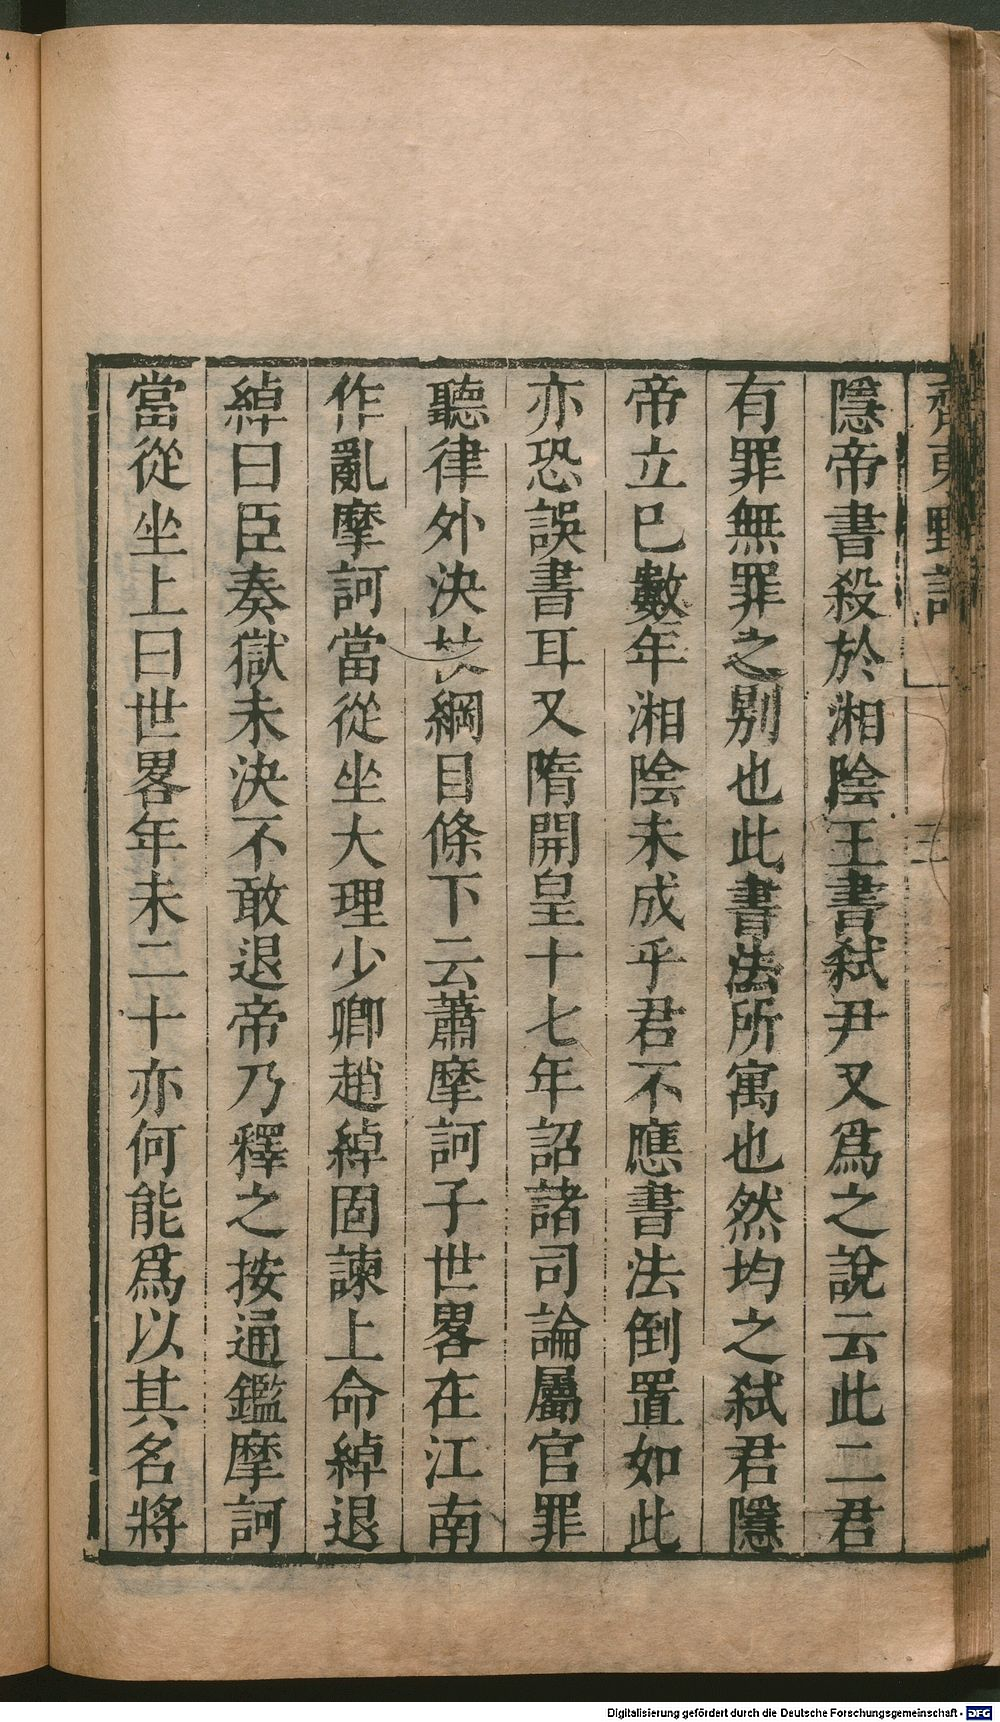 齊東野語
三
隱帝書殺於湘陰王書弑尹又爲之說云此二君
有罪無罪之别也此書法所寓也然均之弑君隱
帝立已數年湘陰未成乎君不應書法倒置如此
亦恐誤書耳又隋開皇十七年詔諸司論屬官罪
聽律外決杖綱目條下云蕭摩訶子世畧在江南
作亂摩訶當從坐大理少卿趙綽固諫上命綽退
綽曰臣奏獄未決不敢退帝乃釋之按通鑑摩訶
當從坐上曰世畧年未二十亦何能爲以其名將
Digitalisierung gefördert durch die Deutsche Forschungsgemeinschaft - DFG